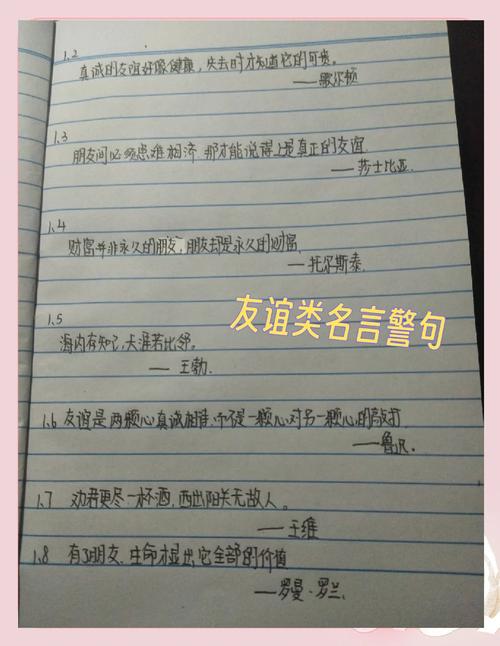 1.2
真诚的友谊好像健康，失去时才知道它的可贵。
——歌尔顿
1.3
朋友间必须患难相济，那才能说得上是真正的友谊
——莎士比亚.
1.4
财富并非永久的朋友，朋友却是永久的财富.
——托尔斯泰.
友谊类名言警句
1.5
海内存知己，天涯若比邻。
——王勃.
1.6 友谊是两颗心真诚相待，不是一颗心对另一颗心的敲打
——鲁迅.
1.7 劝君更尽一杯酒，西出阳关无故人。
——王维
1.8 有了朋友，生命才显出它全部的价值
——罗曼·罗兰.